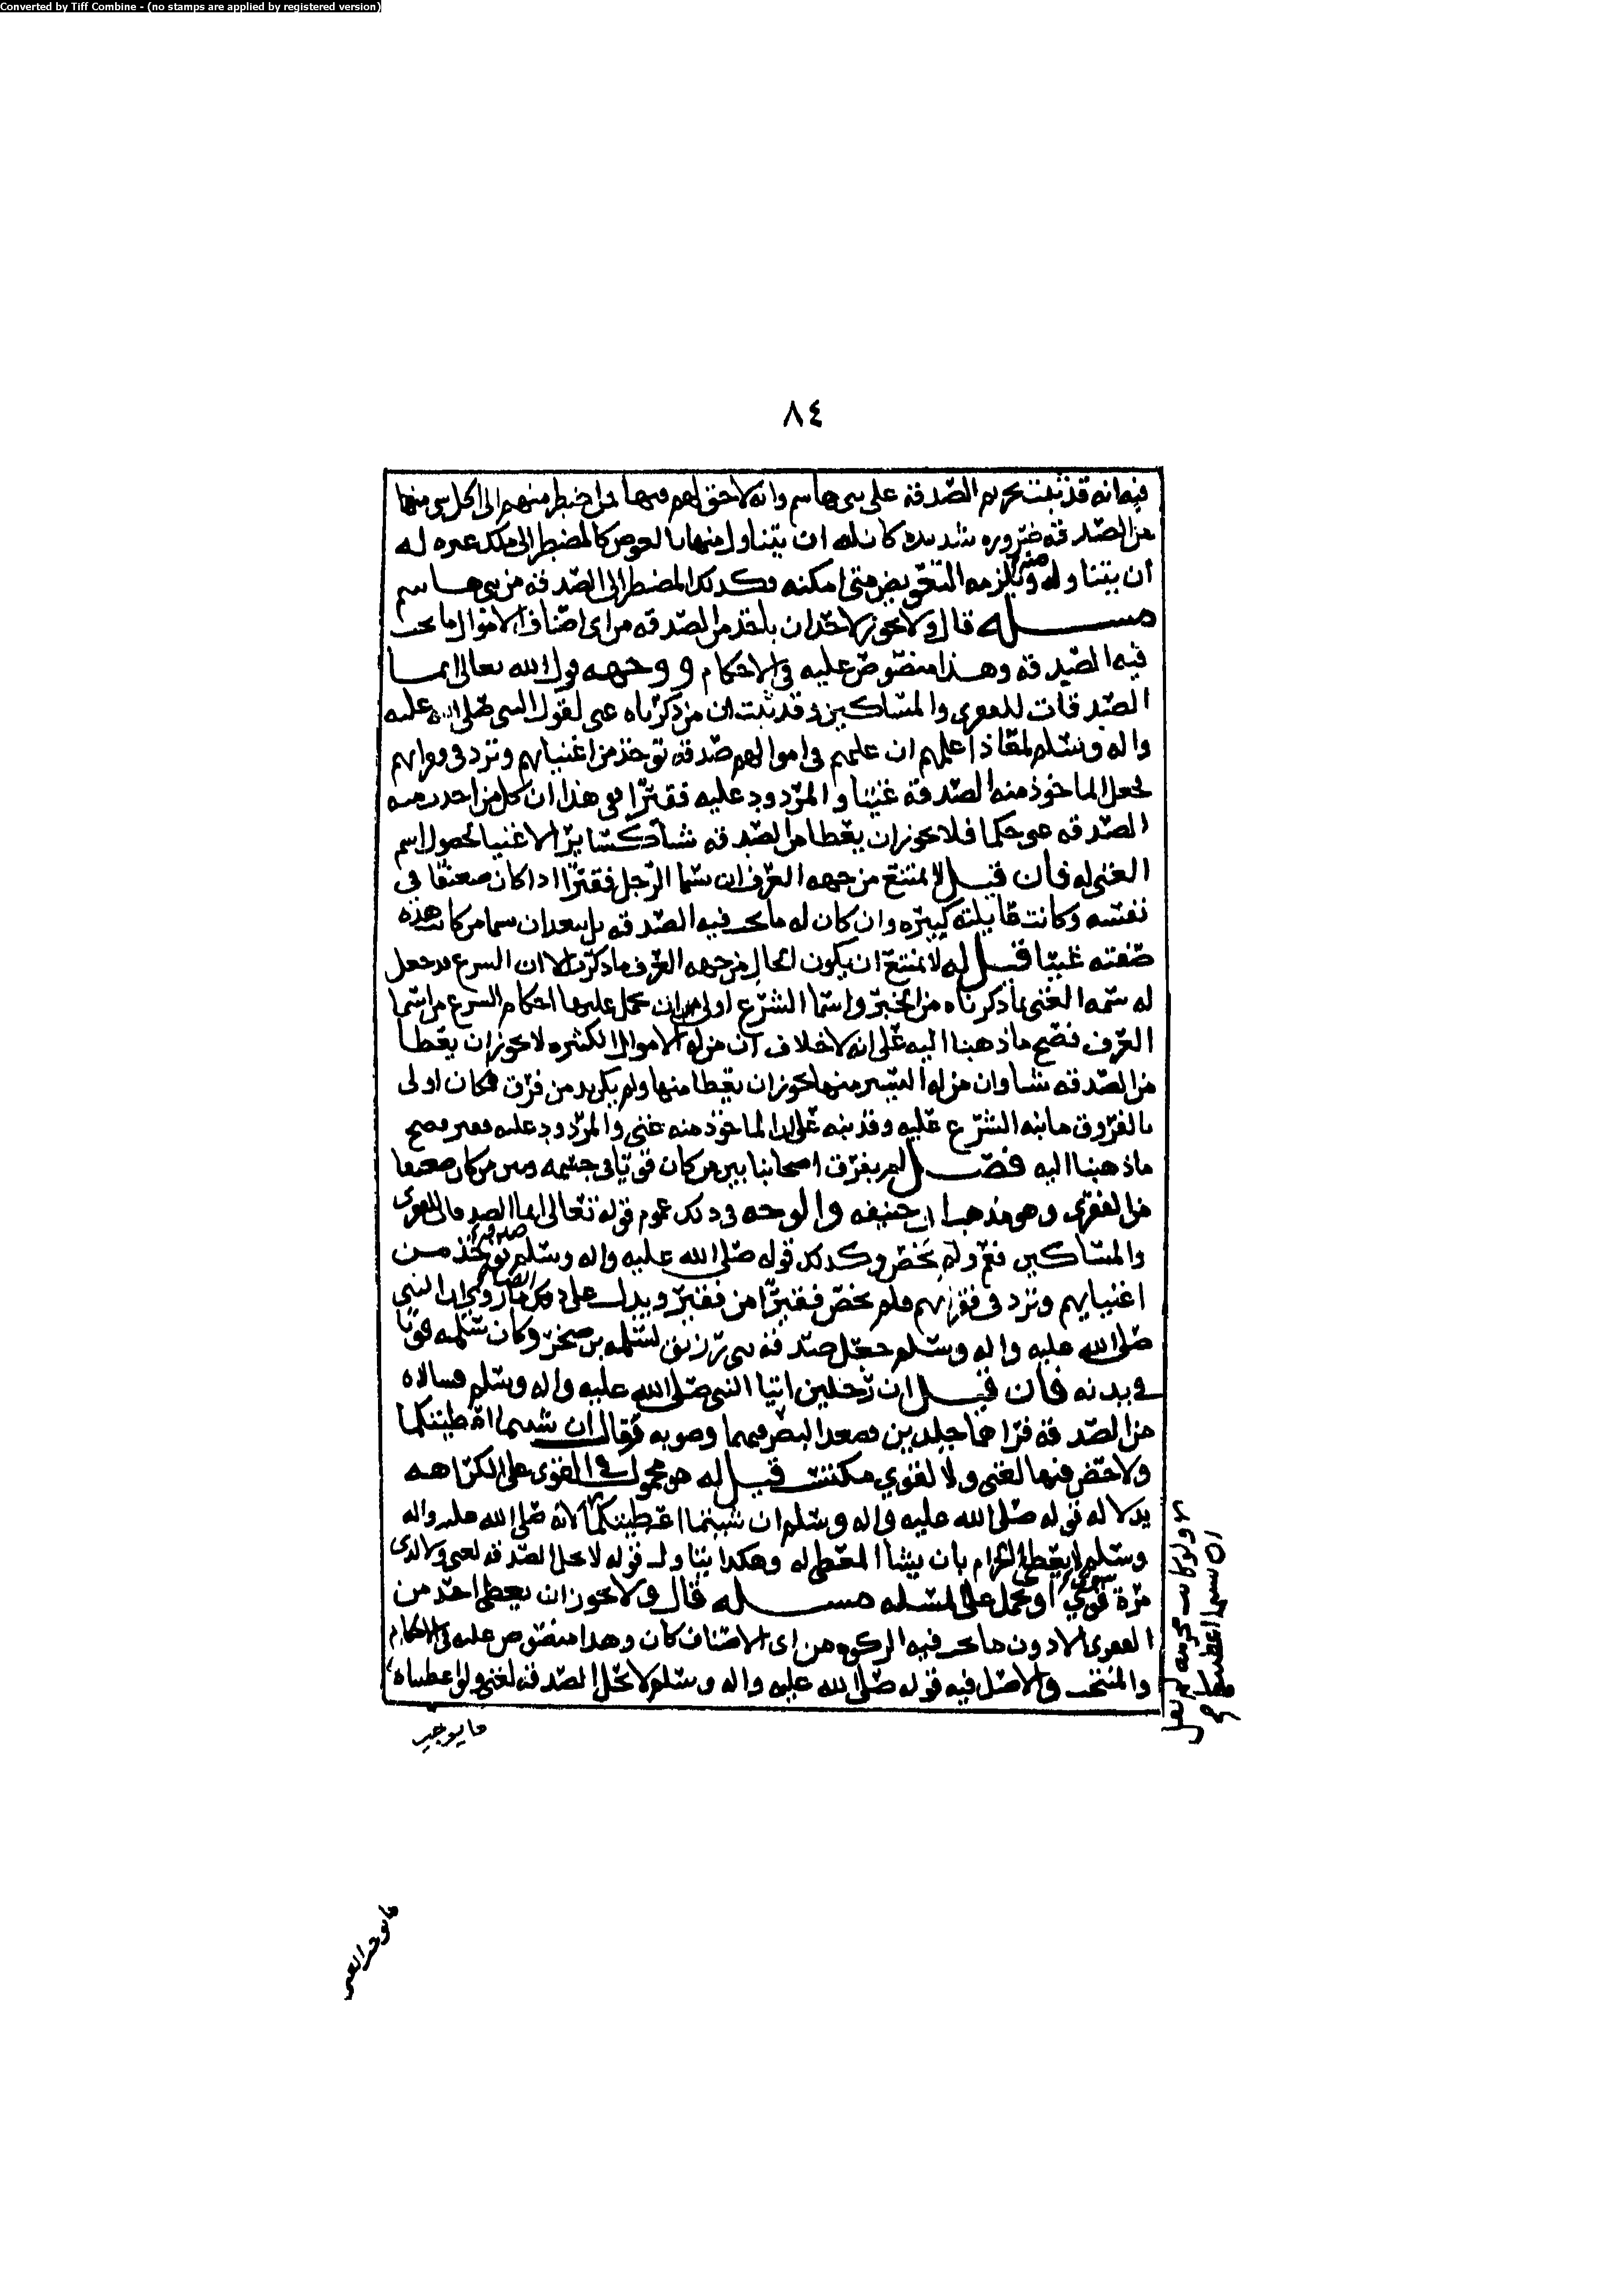 Converted by Tiff Combine - (no stamps are applied by registered version)
٨٤
فيه انه قد ثبت تحريم الصدقة على بني هاشم وانه لا حق لهم فيها فمن اضطر منهم الى اكل شي منها
من الصدقة ضروره شديده كان له ان يتناول منها بالعوض كالمضطر الى ملك غيره له
ان يتناوله ويلزمه التعويض متى امكنه فكذلك المضطر الى الصدقة من بني هاشم
مسله قال ولا يجوز لاحد ان ياخذ من الصدقة من اي اصناف الاموال ما يجب
فيه الصدقة وهذا منصوص عليه في الاحكام ووجهه قول الله تعالى انما
الصدقات للفقرى والمساكين وقد ثبت ان من ذكرناه غني لقول النبي صلى الله عليه
واله وسلم لمعاذ اعلمهم ان عليهم في اموالهم صدقة توخذ من اغنيايهم وترد في فقرايهم
فجعل الماخوذ منه الصدقة غنيا والمردود عليه فقيرا ففي هذا ان كل من اخذت منه
الصدقة غني حكما فلا يجوز ان يعطا من الصدقة شيا كساير الاغنيا لحصول اسم
الغني له فان قيل لا يمتنع من جهه العرف ان يسما الرجل فقيرا اذا كان ضعيفا في
نفسه وكانت عايلته كبيره وان كان له ما يجب فيه الصدقة بل يبعد ان يسما من كانت هذه
صفته غنيا قيل له لا يمتنع ان يكون الحال من جهه العرف ما ذكرت الا ان الشرع قد جعل
له سمه الغني بما ذكرناه من الخبر واسما الشرع اولى من ان تحمل عليها احكام الشرع من اسما
العرف فصح ما ذهبنا اليه على انه لا خلاف ان من له الاموال الكثيره لا يجوز ان يعطا
من الصدقة شيا وان من له اليسير منها يجوز ان يعطا منها ولم يكن بد من فرق فكان اولى
بالفروق ما نبه الشرع عليه وقد نبه على ان الماخوذ منه غني والمردود عليه فقير فصح
ما ذهبنا اليه فصل لم يفرق اصحابنا بين من كان قويا في جسمه وبين من كان ضعيفا
من الفقرى وهو مذهب ابي حنيفه والوجه في ذلك عموم قوله تعالى انما الصدقات للفقرى
والمساكين فعم ولم يخص وكذلك قوله صلى الله عليه واله وسلم صدقة توخذ من
اغنيايهم وترد في فقرايهم فلم يخص فقيرا من فقير ويدل على ذلك ايضا ما روي ان النبي
صلى الله عليه واله وسلم جعل صدقة بني زريق لسلمه بن صخر وكان سلمه قويا
في بدنه فان قيل ان رجلين اتيا النبي صلى الله عليه واله وسلم فسالاه
من الصدقة فراهما جلدين فصعد البصر فيهما وصوبه فقال ان شيتما اعطيتكما
ولا حض فيها لغني ولا لقوي مكتسب قيل له هو محمول في القوي على الكراهه
بدلاله قوله صلى الله عليه واله وسلم ان شيتما اعطيتكما لانه صلى الله عليه واله
وسلم لا يعطي الحرام بان يشا المعطى له وهكذا يتناول قوله لا تحل الصدقة لغني ولا لذي
مرة سوي او يحمل على المسله مسله قال ولا يجوز ان يعطى احد من
الفقرى الا دون ما يجب فيه الزكوه من اي الاصناف كان وهذا منصوص عليه في الاحكام
والمنتخب والاصل فيه قوله صلى الله عليه واله وسلم لا تحل الصدقة لغني ولو اعطيناه
ما يوجب
ولو كانت محرمه لم يقل
ان شيتما اعطيتكما